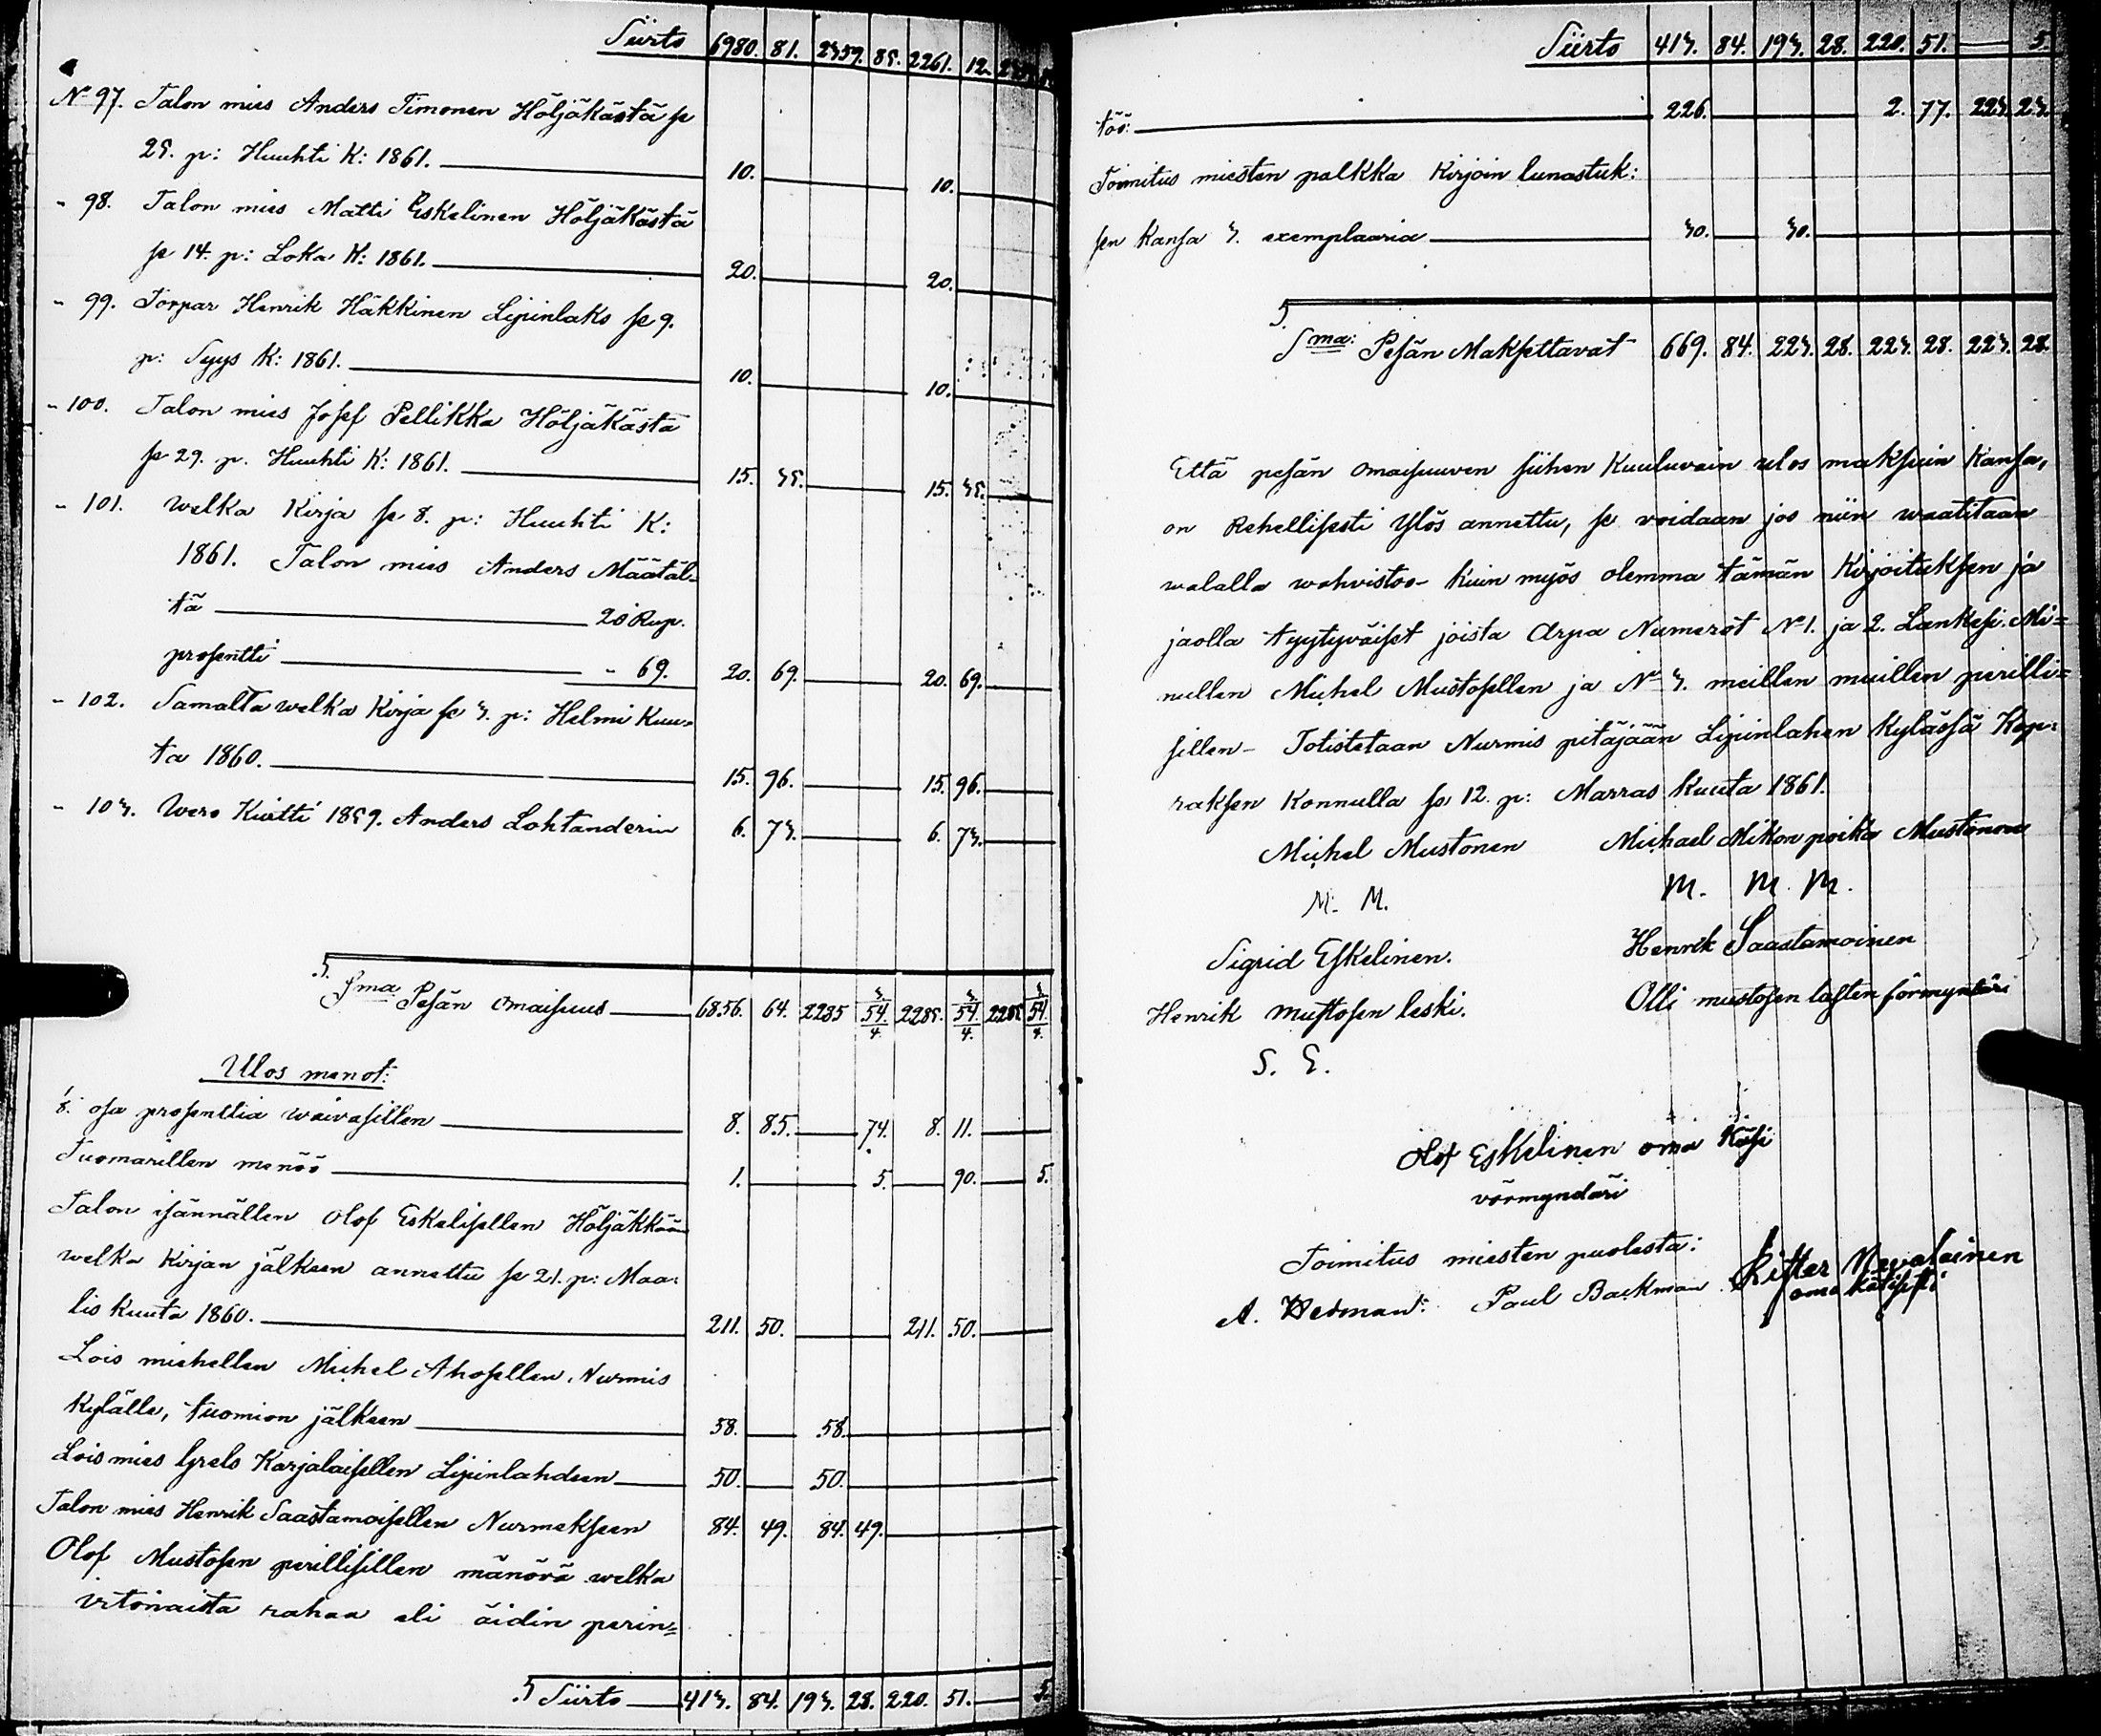 Siirto 6980. 81. 2359. 85. 2261. 12.
N:o 97. Talon mies Anders Timonen Höljäkästä se
25. p: Huuhti K: 1861. 10. 10.
" 98. Talon mies Matti Eskelinen Höljäkästä
se 14. p: Loka K: 1861. 20. 20.
" 99. Torpar Henrik Häkkinen Lipinlaks se 9.
p: Syys K: 1861. 10. 10.
" 100. Talon mies Josef Pellikka Höljäkästä
se 29. p. Huuhti K: 1861. 15. 35. 15. 35.
" 101. Welka Kirja se 8. p: Huuhti K:
1861. Talon mies Anders Määtäl-
tä 20 Rup.
prosentti " 69. 20. 69. 20. 69.
" 102. Samalta welka Kirja se 3. p: Helmi Kuu-
ta 1860. 15. 96. 15. 96.
" 103. Wero Kuitti 1859. Anders Lohtanderin 6. 73. 6. 73.
S:ma Pesän omaisuus 6856. 64. 2285 54. 3/4. 2285. 54. 3/4. 2285 54. 3/4.
Ulos menot:
1/8. osa prosenttia waivasillen 8. 85. 74. 8. 11.
Tuomarillen menöö 1. 5. 90. 5.
Talon isännällen Olof Eskelisellen Höljäkkään
welka Kirjan jälkeen annettu se 21. p: Maa-
lis kuuta 1860. 211. 50. 211. 50.
Lois miehellen Michel Ahosellen Nurmis
Kylälle, tuomion jälkeen 58. 58.
Lois mies Grels Karjalaisellen Lipinlahdeen 50. 50.
Talon mies Henrik Saastamoisellen Nurmekseen 84. 49. 84. 49.
Olof Mustosen perillisillen mänövä welka
rahaa eli äidin perin=
Siirto 413. 84. 193. 28. 220. 51. 5.
Siirto 413. 84. 193. 28. 220. 51. 5.
töö: 226. 2. 77. 223. 23.
Toimitus miesten palkka Kirjoin lunastuk:
sen kansa 3. exemplaaria 30. 30.
S:ma: Pesän Maksettavat 669. 84. 223. 28. 223. 28. 223. 28.
Että pesän omaisuuven siihen Kuuluvain ulos maksuin kansa,
on Rehellisesti Ylös annettu, se voidaan jos niin waatitaan
walalla wahvistoo- Kuin myös olemma tämän Kirjoituksen ja
jaolla tyytyväiset joista Arpa Numerot N:o 1. ja 2. Lankesi Mi=
nullen Michel Mustosellen ja N:o 3. meillen muillen perilli=
sillen- Totistetaan Nurmis pitäjään Lipinlahen Kylässä Kop=
raksen Konnulla se 12. p: Marras kuuta 1861.
Michel Mustonen Michael Mikon poika Mustonen
M. M. M. M. M.
Sigrid Eskelinen. Henrik Saastamoinen
Henrik mustosen leski. Olli mustosen lasten förmyndäri
S. E.
Olof Eskelinen oma Käsi
vörmyndäri
Toimitus miesten puolesta:
A. Hedman: Paul Backman Kister Nevalainen
oma kätisesti